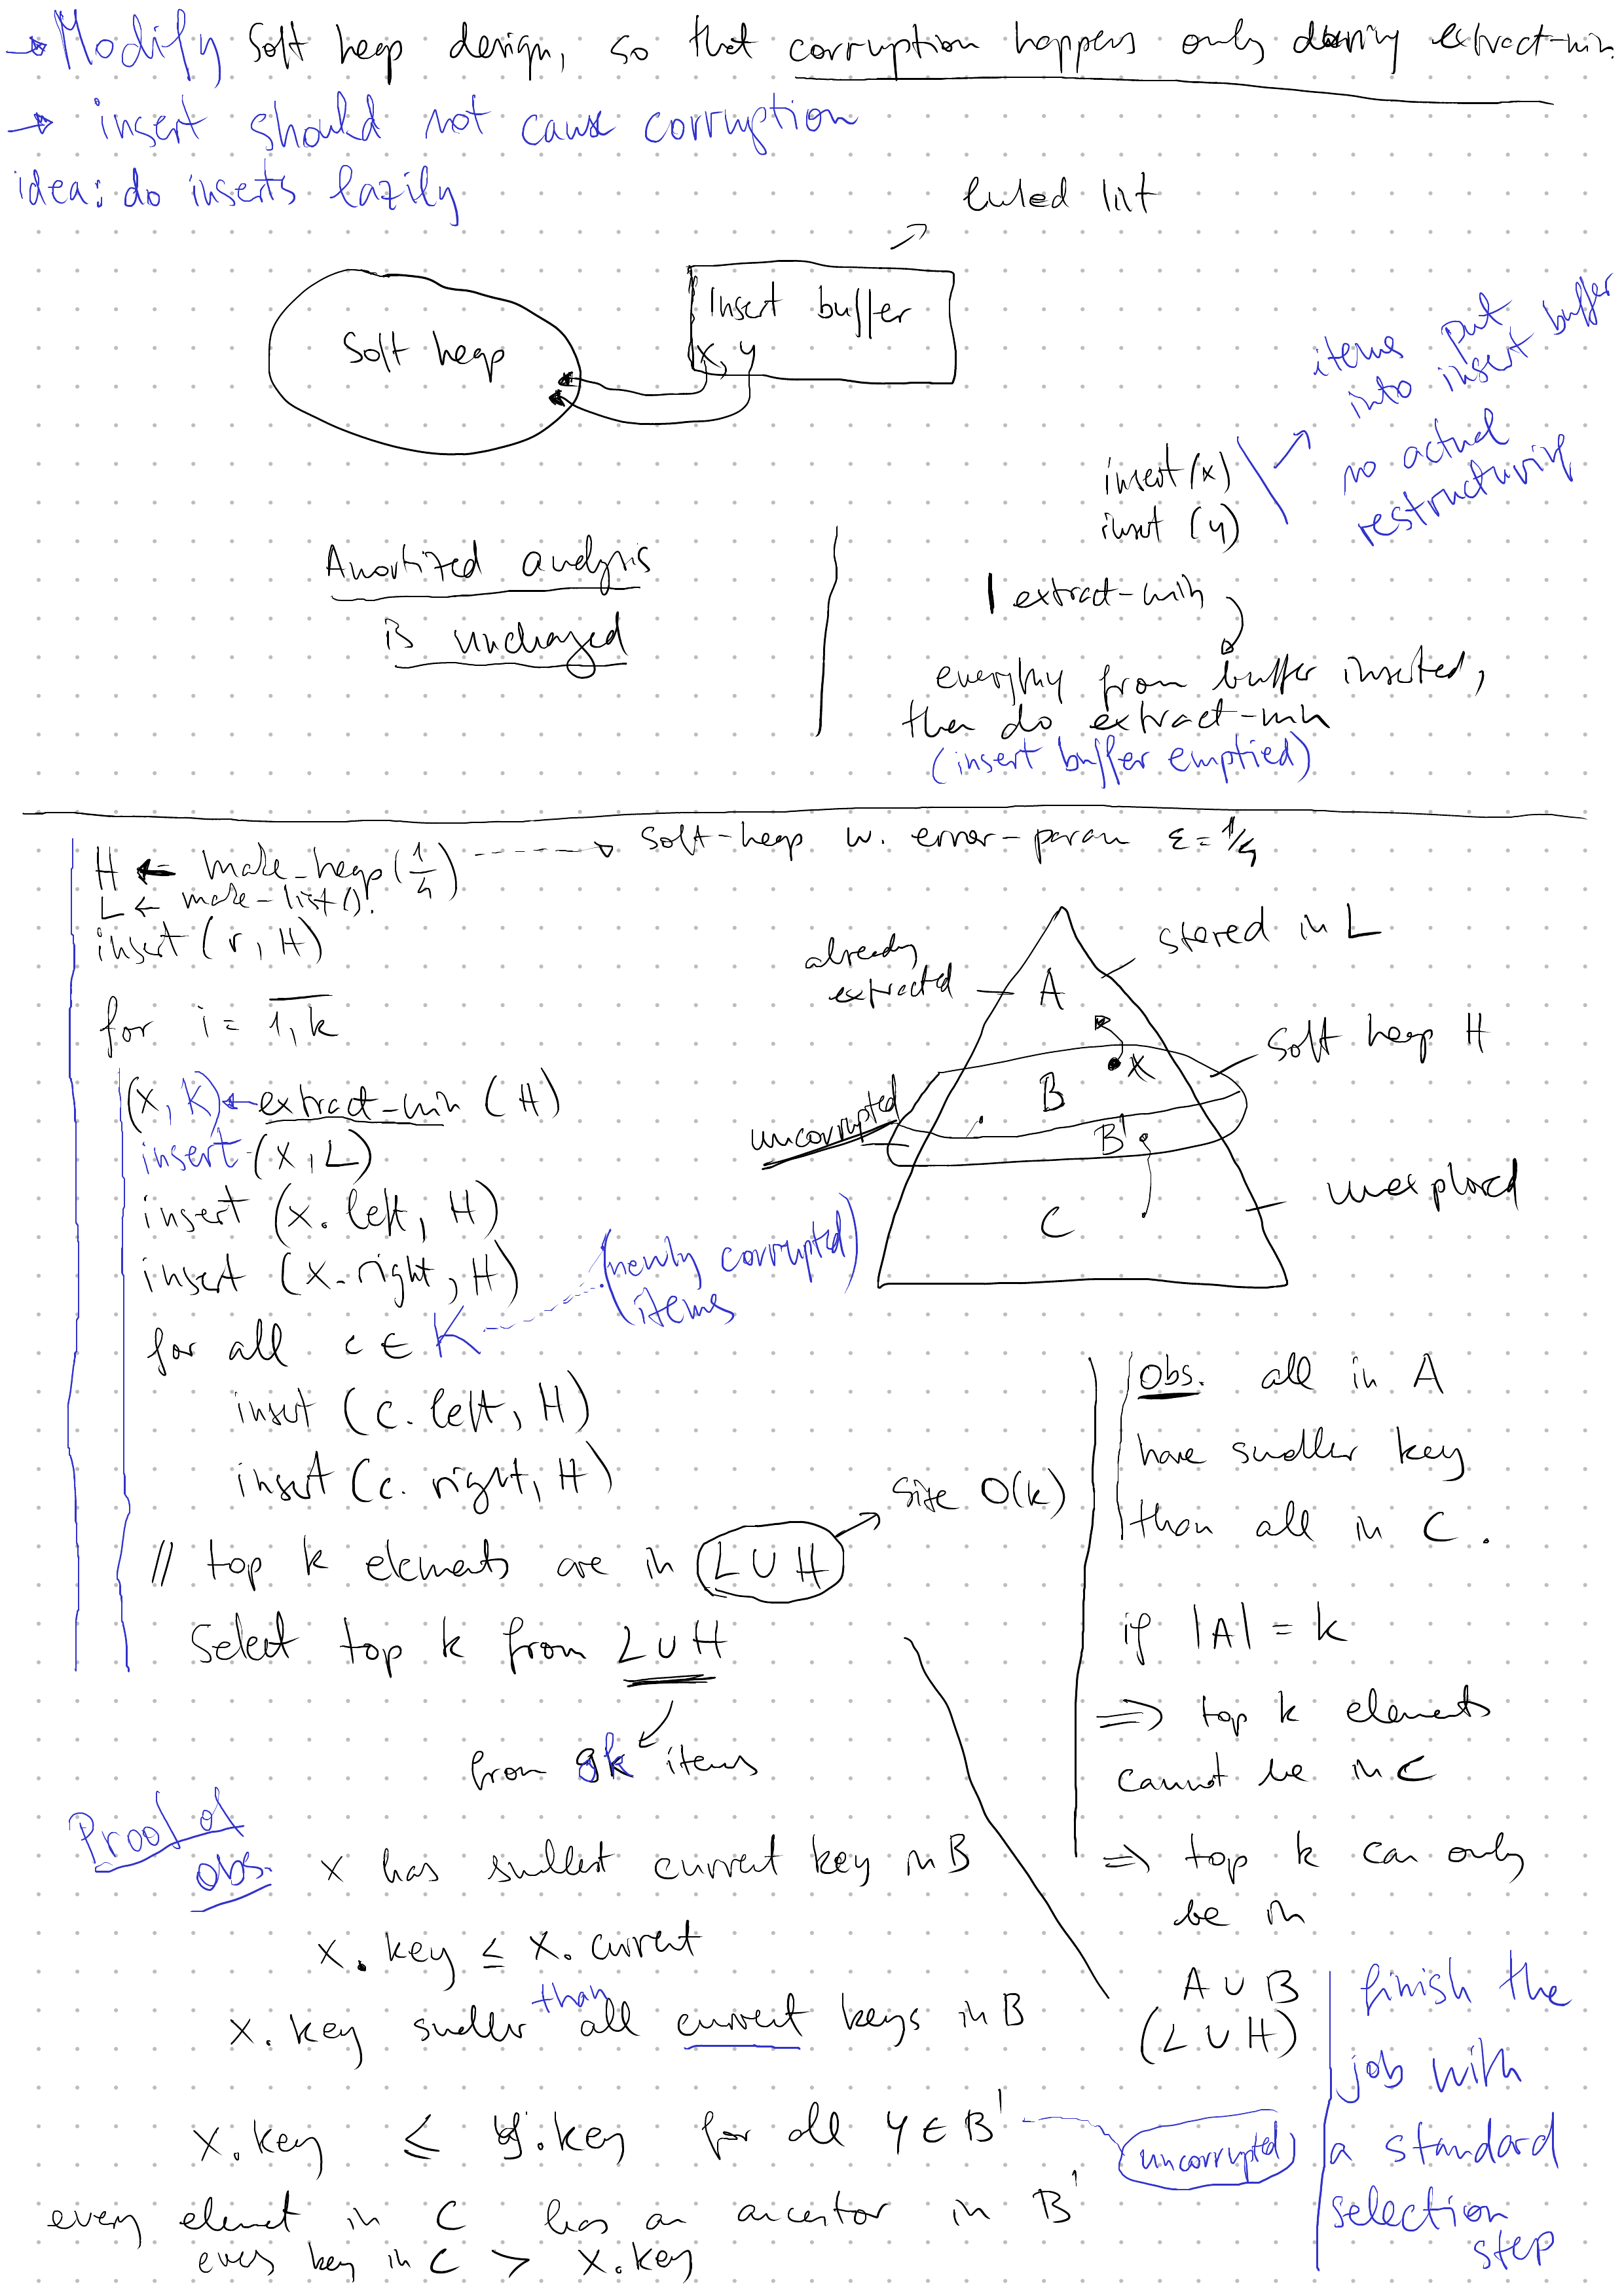 → Modify soft heap design, so that corruption happens only during extract-min.
→ insert should not cause corruption
idea: do inserts lazily
linked list
Soft heap
Insert buffer
x, y
items put
into insert buffer
no actual
restructuring
insert (x)
insert (y)
Amortized analysis
is unchanged
extract-min
everything from buffer inserted,
then do extract-min
(insert buffer emptied)
H ← make-heap(1/4) ----> soft-heap w. error-param ε = 1/4
L ← make-list()
insert (r, H)
for i = 1, k
(x, K) ← extract-min (H)
insert (x, L)
insert (x. left, H)
insert (x. right, H)
for all c ∈ K
(newly corrupted)
items
insert (c. left, H)
insert (c. right, H)
// top k elements are in L ∪ H
size O(k)
Select top k from L ∪ H
from 9k items
already
extracted
A
stored in L
x
Soft heap H
B
uncorrupted
B'
C
unexplored
Obs. all in A
have smaller key
than all in C.
if |A| = k
⇒ top k elements
cannot be in C
⇒ top k can only
be in
A ∪ B
(L ∪ H)
finish the
job with
a standard
selection
step
Proof of
obs.
x has smallest current key in B
x. key ≤ x. current
x. key smaller than all current keys in B
x. key ≤ y. key for all y ∈ B'
uncorrupted
every element in C has an ancestor in B'
every key in C > x. key